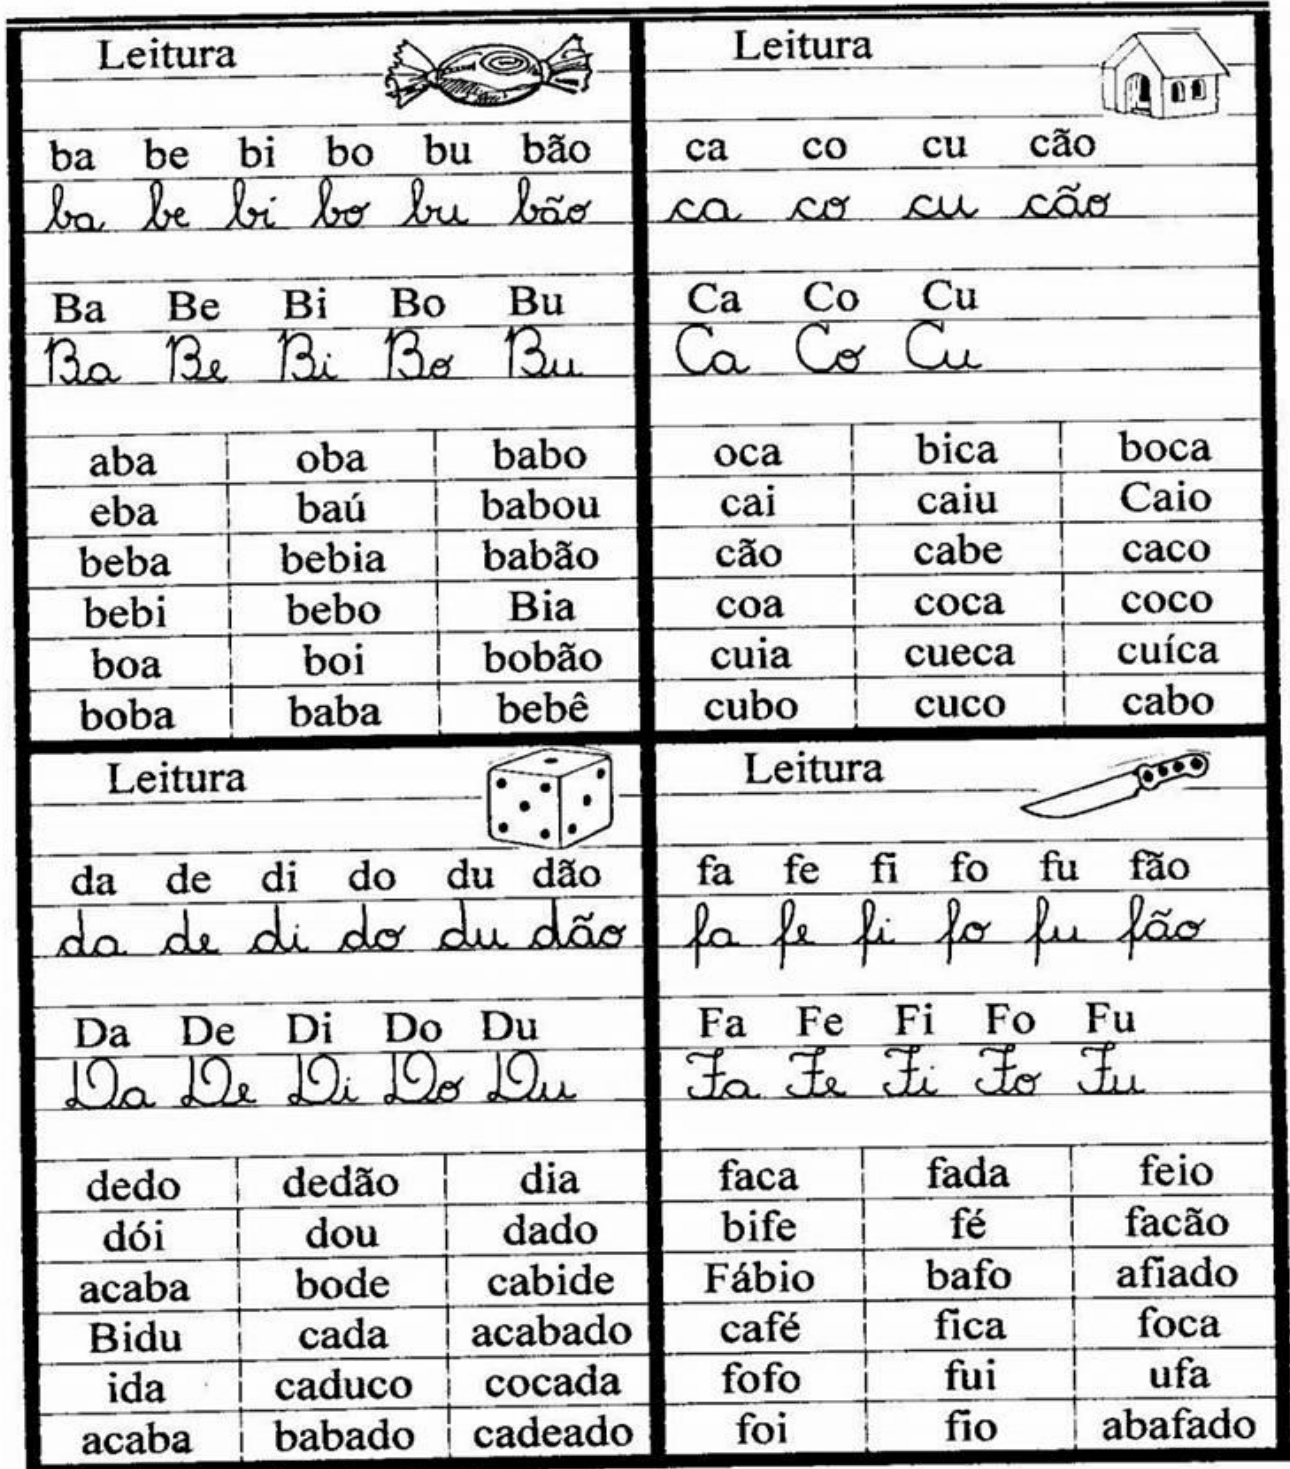 Leitura
ba be bi bo bu bão
ba be bi bo bu bão
Ba Be Bi Bo Bu
Ba Be Bi Bo Bu
aba oba babo
eba baú babou
beba bebia babão
bebi bebo Bia
boa boi bobão
boba baba bebê
Leitura
ca co cu cão
ca co cu cão
Ca Co Cu
Ca Co Cu
oca bica boca
cai caiu Caio
cão cabe caco
coa coca coco
cuia cueca cuíca
cubo cuco cabo
Leitura
da de di do du dão
da de di do du dão
Da De Di Do Du
Da De Di Do Du
dedo dedão dia
dói dou dado
acaba bode cabide
Bidu cada acabado
ida caduco cocada
acaba babado cadeado
Leitura
fa fe fi fo fu fão
fa fe fi fo fu fão
Fa Fe Fi Fo Fu
Fa Fe Fi Fo Fu
faca fada feio
bife fé facão
Fábio bafo afiado
café fica foca
fofo fui ufa
foi fio abafado